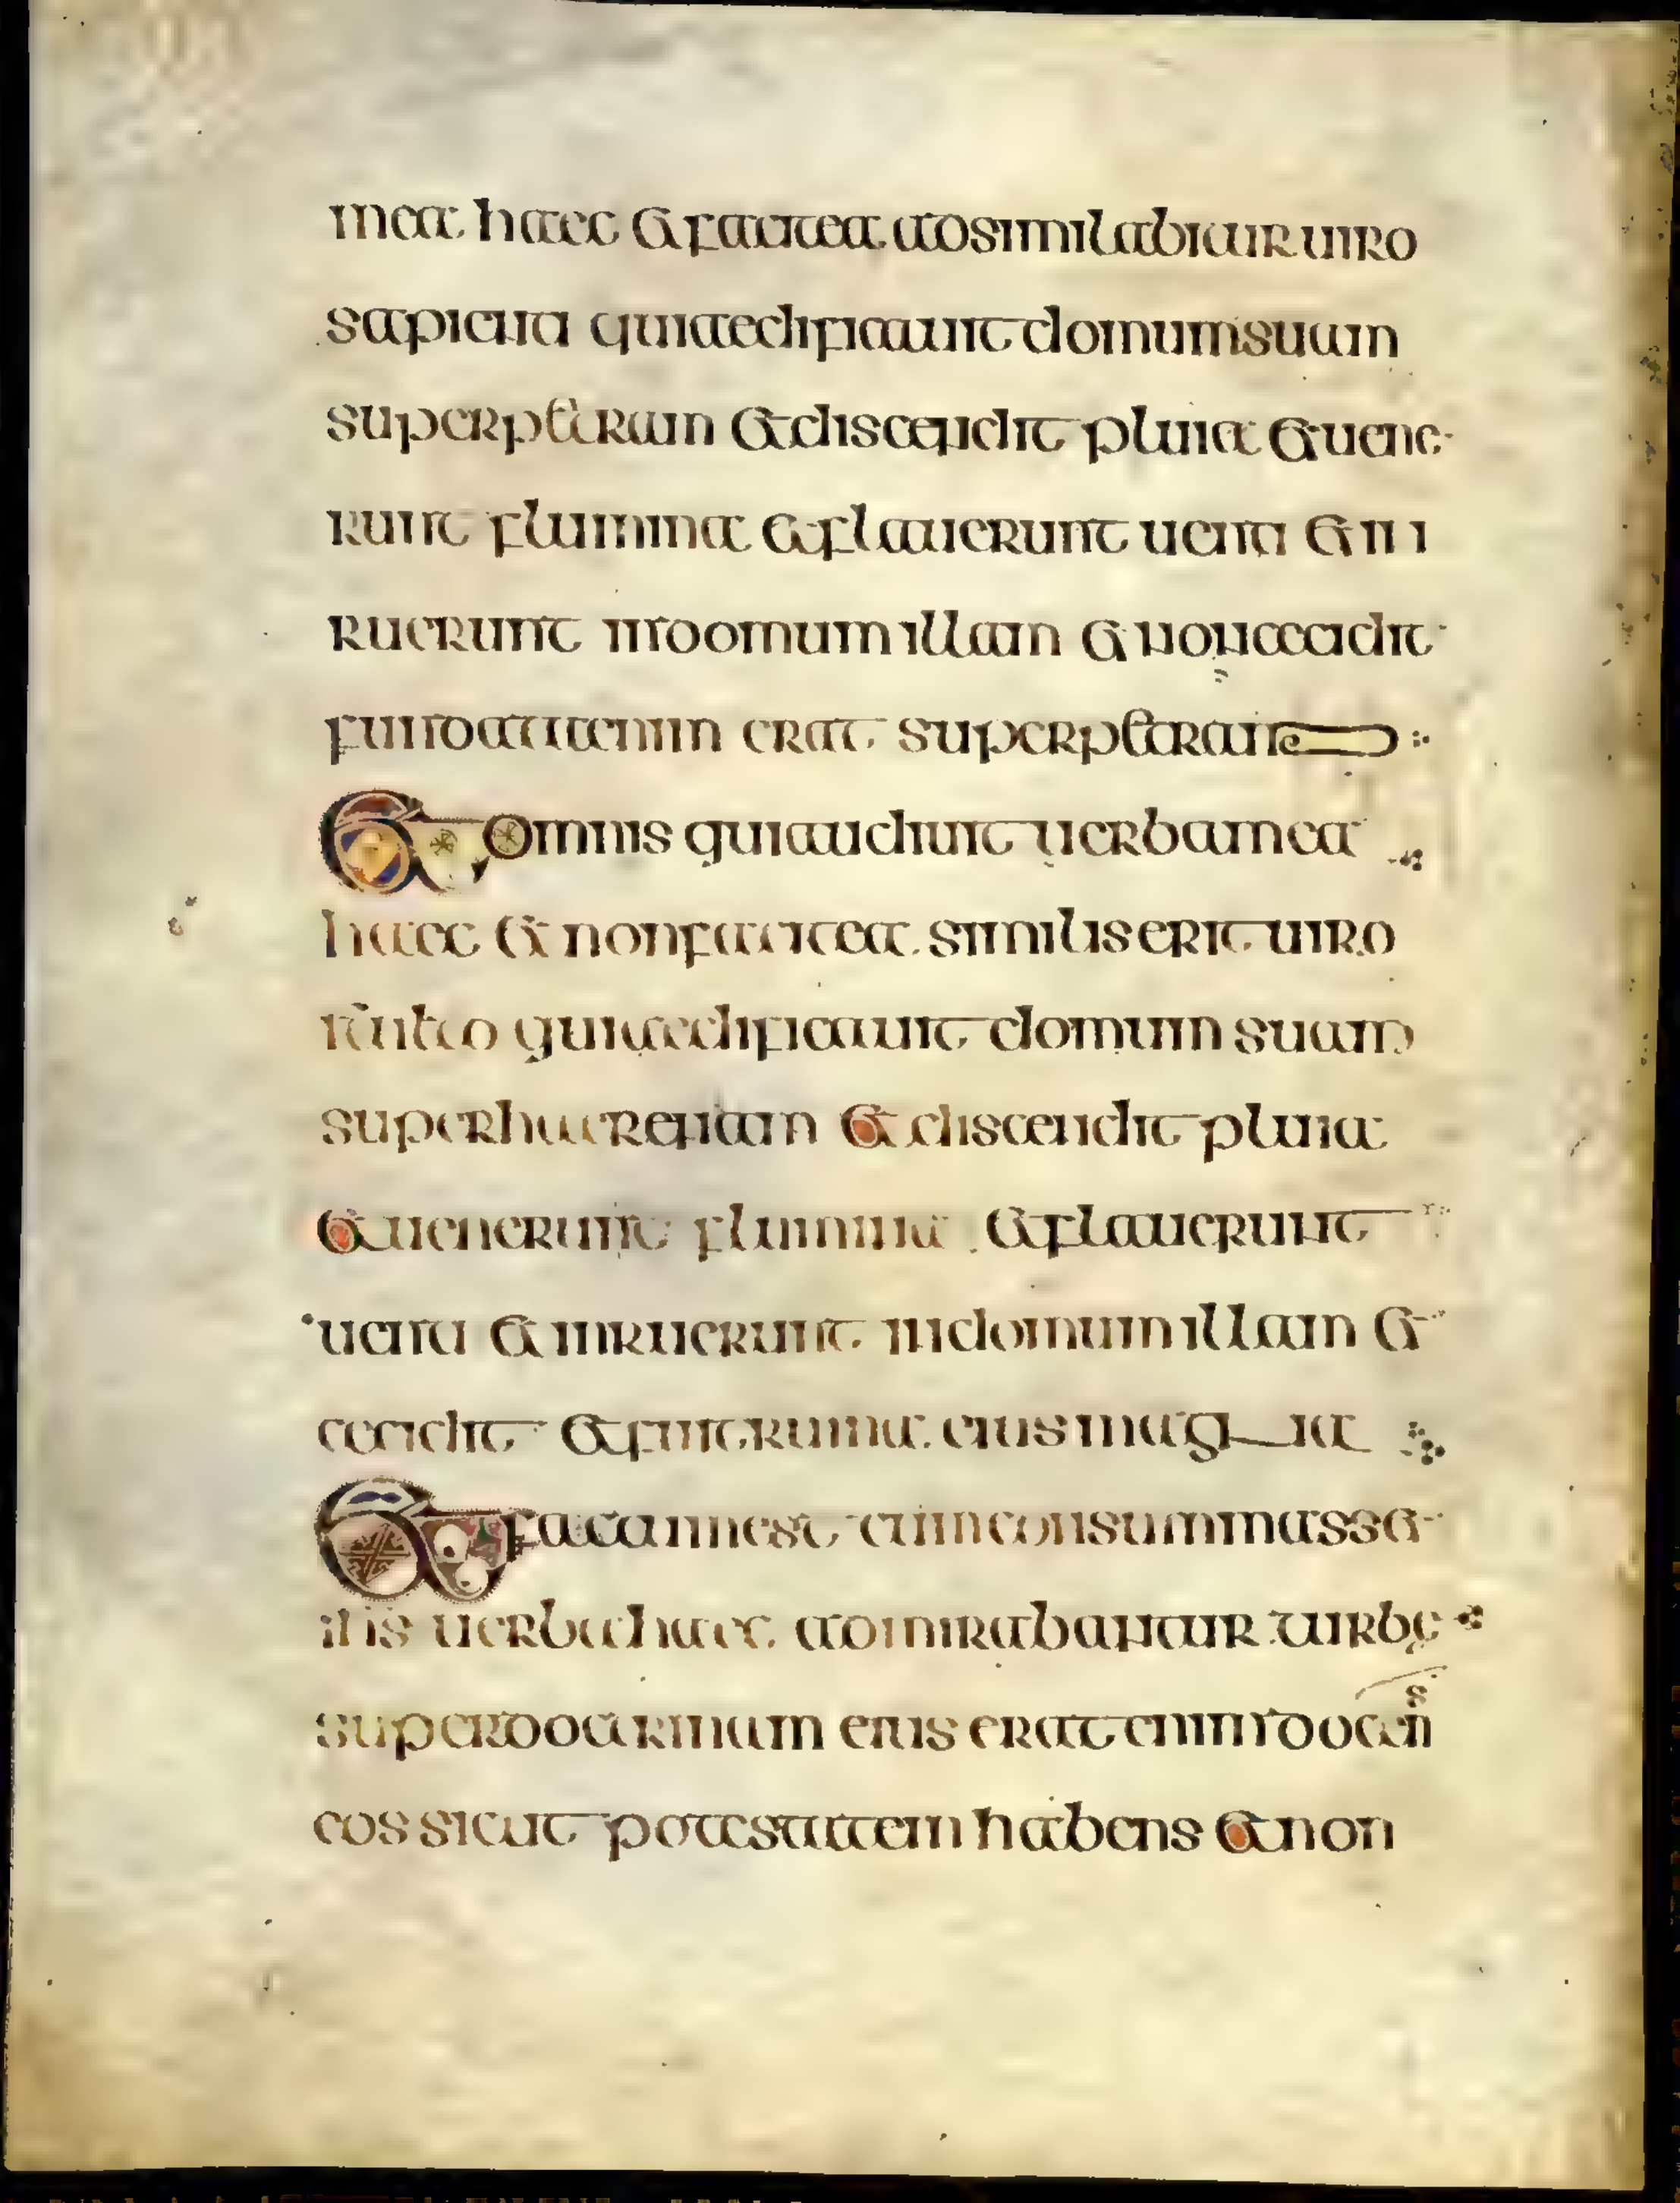 mea haec et facit ea adsimilabitur uiro
sapienti qui aedificauit domum suam
super petram et discendit pluia et uene
runt flumina et flauerunt uenti et in
ruerunt in domum illam et non cecidit
fundata enim erat super petram
Et omnis qui audiuit uerba mea
haec et non facit ea similis erit uiro
stulto qui aedificauit domum suam
super harenam et discendit pluia
et uenerunt flumina et flauerunt
uenti et inruerunt in domum illam et
cecidit et fuit ruina eius magna
Et factum est cum consummasset
ihs uerba haec admirabantur turbe
super doctrinam eius erat enim docens
eos sicut potestatem habens et non